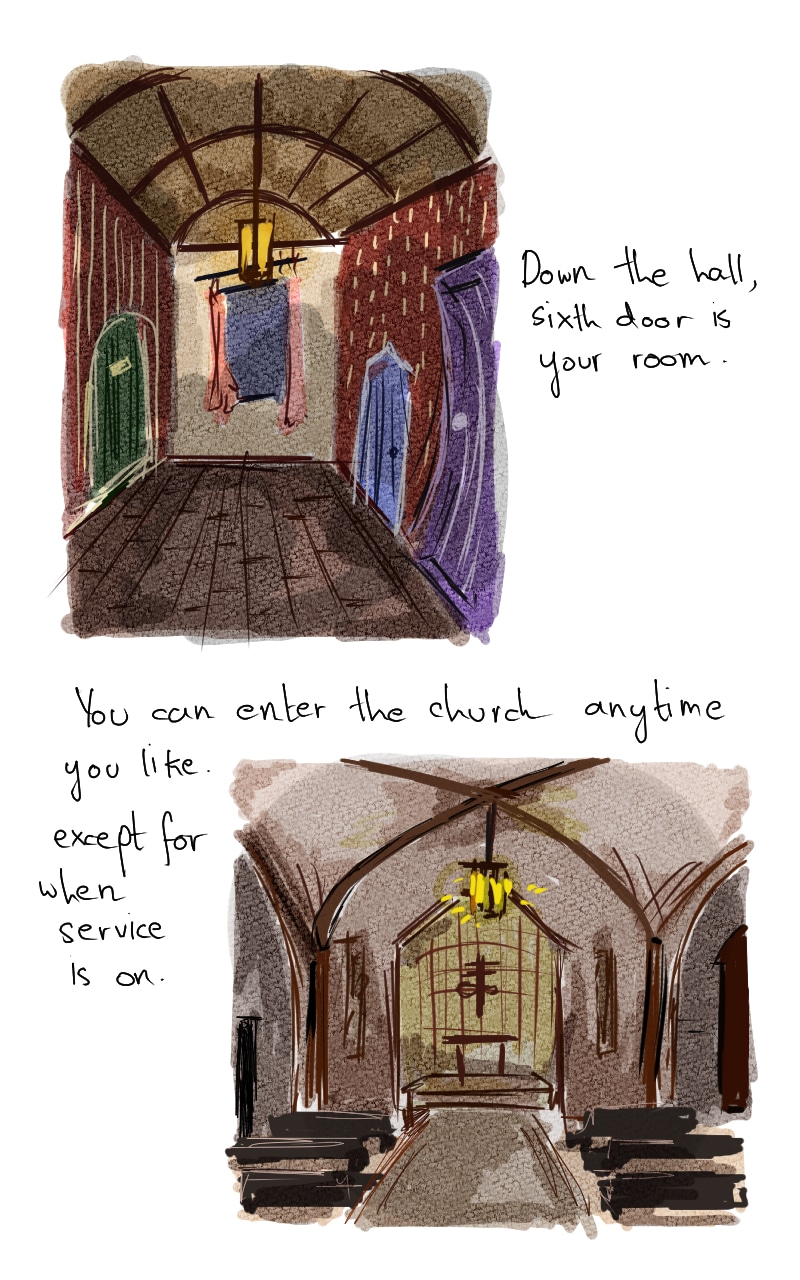 Down the hall,
sixth door is
your room.
You can enter the church anytime
you like.
except for
when
service
is on.